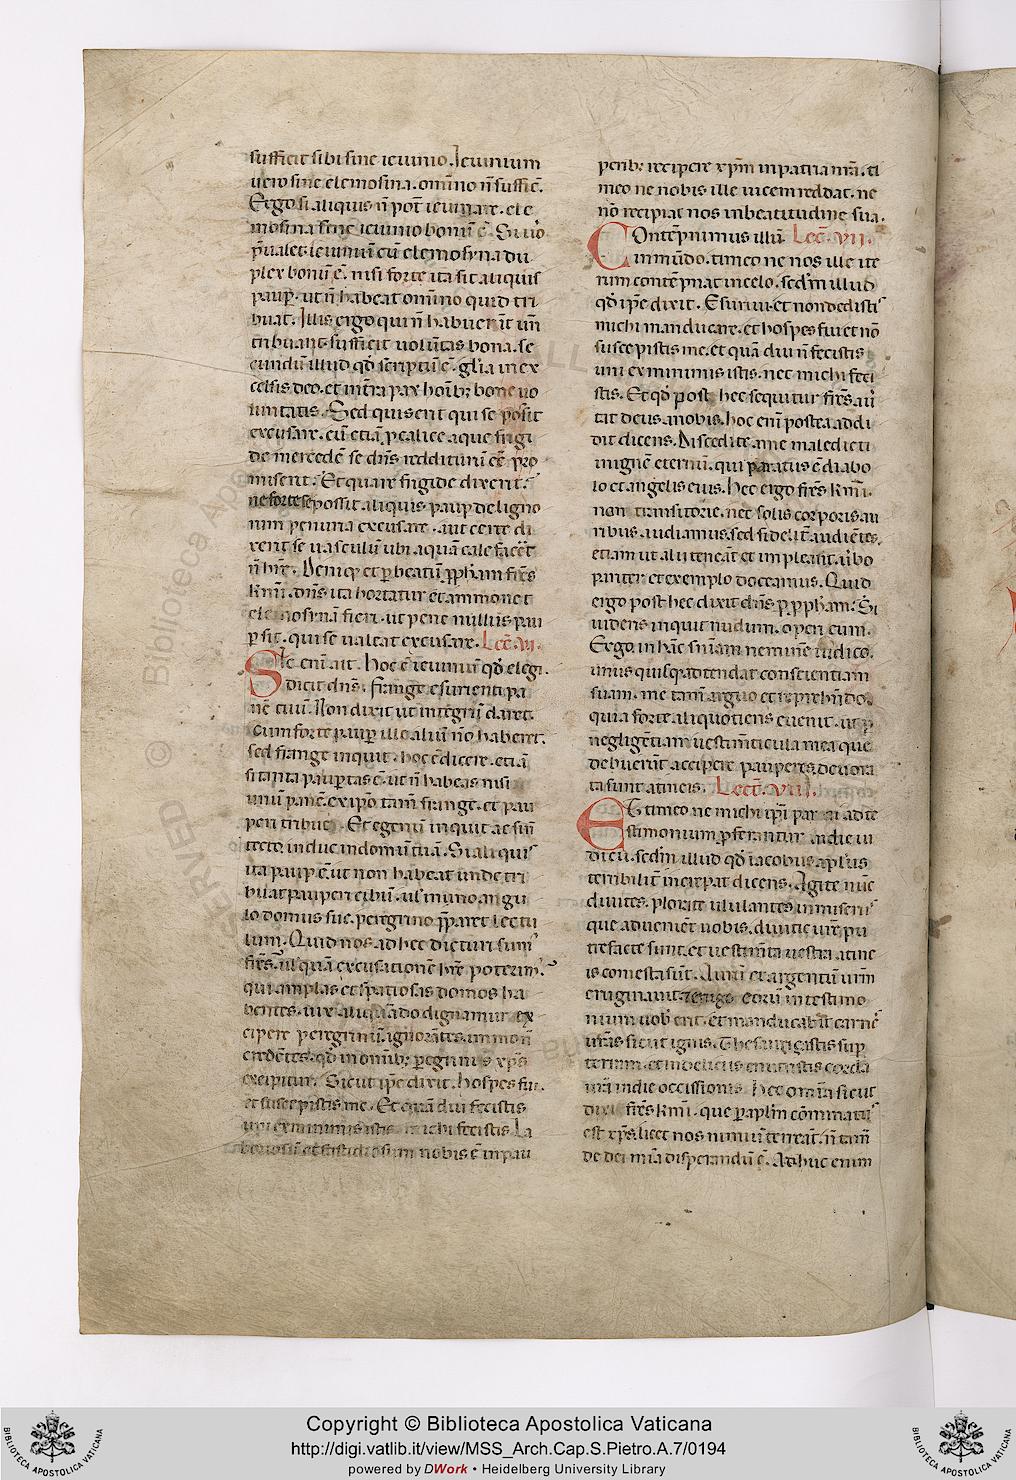 sufficit sibi sine ieiunio. Ieiunium
uero sine elemosina. om̄ino n̄ suffic̄.
Ergo si aliquis n̄ pot̄ ieiunare. ele
mosina sine ieiunio bonū ē. Si uo
p̄ualet. ieiuniū cū elemosyna du
plex bonū ē. nisi forte ita sit aliquis
paup̄. ut n̄ habeat om̄ino quid tri
buat. Illis ergo qui n̄ habuerīt un̄
tribuant. sufficit uolūtas bona. se
cundū illud qd̄ scriptū ē. gl̄ia in ex
celsis deo. et in tr̄a pax hoībꝫ bone uo
luntatis. Sed quis erit qui se possit
excusare. cū etiā p calice aque frigi
de mercedē se dn̄s redditurū eē pro
miserit. Et quare frigide dixerit.
ne forte se possit aliquis paup̄ de ligno
rum penuria excusare. aut certe di
xerit se uasculū ubi aquā calefacēt
n̄ hr̄e. Deniq; et p beatū pp̄ham fr̄es
kmī. dn̄s ita hortatur et ammonet
elemosynā fieri. ut pene nullus pau
p̄ sit. qui se ualeat excusare. Lec̄. vi.
Sic enī ait. hoc ē ieiuniū qd̄ elegi.
dicit dn̄s. frange esurienti pa
ne tuū. Non dixit ut integrū daret.
cum forte paup̄ ille aliū nō haberet.
sed frange inquit. hoc ē dicere. etiā
si tanta paup̄tas ē. ut n̄ habeas nisi
unū panē. ex ip̄o tam̄ frange. et pau
peri tribue. Et egenū inquit ac sin̄
tecto. induc in domū tuā. Si aliquis
ita paup̄ ē. ut non habeat unde tri
buat pauperi cibū. ul' in uno angu
lo domus sue. peregrino pp̄aret lectu
lum. Quid nos ad hec dicturi sum'
fr̄es. ul' quā excusationē hr̄e poterim'.
qui amplas et spatiosas domos ha
bentes. uix aliquādo dignamur ex
cipere peregrinū. ignorātes. immo n̄
credētes. qd̄ in om̄ibꝫ peregrinis xp̄s
excipitur. Sicut ip̄e dixit. hospes fui.
et suscepistis me. Et quā diu fecistis
uni ex minimis istis. michi fecistis. La
boriosū et fastidiosum nobis ē in pau
peribꝫ recipere xp̄m in patria nr̄a. ti
meo ne nobis ille uicem reddat. ne
nō recipiat nos in beatitudine sua.
Contēpnimus illū Lec̄. vii.
in mūdo. timeo ne nos ille ite
rum contēpnat in celo. sedm̄ illud
qd̄ ip̄e dixit. Esuriui. et non dedistis
michi manducare. et hospes fui et nō
suscepistis me. et quā diu n̄ fecistis
uni ex minimis istis. nec michi feci
stis. Et qd̄ post hec sequitur fr̄es. au
tat deus a nobis. hoc enī postea addi
dit dicens. Discedite a me maledicti
in ignē eternū. qui paratus ē diabo
lo et angelis eius. hec ergo fr̄es kmī.
non transitorie. nec solis corporis au
ribus audiamus. sed fidelit̄ audiētes.
etiam ut alii teneāt et impleant. ūbo
pariter et exemplo doceamus. Quid
ergo post hec dixit dn̄s p pp̄ham. Si
uideris inquit nudum. operi eum.
Ergo in hāc sn̄iam neminē iudico.
unus quisq; adtendat conscientiam
suam. me tam̄ arguo et repreh̄ndo.
quia forte aliquotiens euenit. ut p
negligētiam uestimticula mea que
debuerūt accipere pauperes. deuora
ta sunt a tineis. Lec̄. viii.
Et timeo ne michi ip̄i panni ad te
stimonium pferantur in die iu
dicii. sedm̄ illud qd̄ iacobus ap̄l'us
terribilit̄ increpat dicens. Agite nūc
diuites. plorate ululantes in miseriis
que aduenient uobis. diuitie ur̄e pu
trefacte sunt. et uestim̄ta uestra a tine
is comesta sūt. Aurū et argentū ur̄m
eruginauit. et erugo eorū in testimo
nium uob' erit. et manducabit carnes
ur̄as sicut ignis. Thesaurizastis sup
terram. et in deliciis enutristis corda
ur̄a in die occisionis. hec om̄ia sicut
dixi fr̄es kmī. que p apl'm cōminatus
est xp̄s. licet nos nimiū terreāt. n̄ tam̄
de dei mīa disperandū ē. Adhuc enim
Copyright © Biblioteca Apostolica Vaticana
http://digi.vatlib.it/view/MSS_Arch.Cap.S.Pietro.A.7/0194
powered by DWork • Heidelberg University Library
BIBLIOTECA APOSTOLICA VATICANA
BIBLIOTECA APOSTOLICA VATICANA